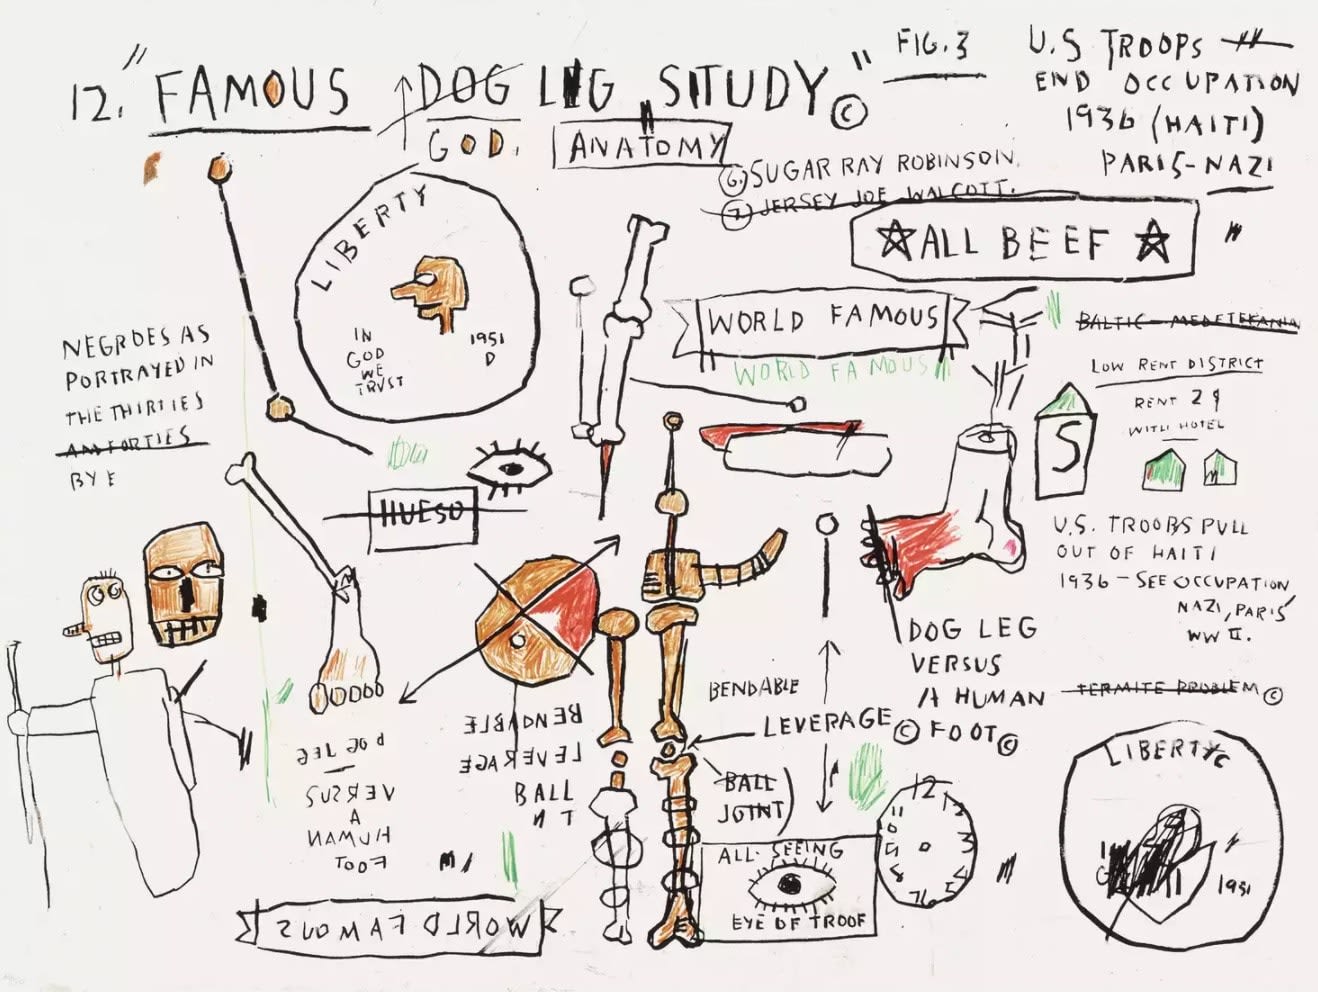 12. "FAMOUS DOG LEG STUDY" ©
GOD.
ANATOMY
FIG. 3
U.S TROOPS
END OCCUPATION
1936 (HAITI)
PARIS-NAZI
6. SUGAR RAY ROBINSON.
7. JERSEY JOE WALCOTT.
ALL BEEF
LIBERTY
IN
GOD
WE
TRVST
1951
D
WORLD FAMOUS
WORLD FAMOUS
BALTIC - MEDETERANIA
LOW RENT DISTRICT
RENT 2
WITH HOTEL
S
NEGROES AS
PORTRAYED IN
THE THIRTIES
AN FORTIES
BY E
HUESO
U.S. TROOPS PULL
OUT OF HAITI
1936 - SEE OCCUPATION
NAZI, PARIS
WW II.
DOG LEG
VERSUS
A HUMAN
FOOT ©
TERMITE PROBLEM ©
BENDABLE
LEVERAGE ©
BALL
JOINT
BENDABLE
LEVERAGE
BALL
N T
DOG LEG
VERSUS
A
HUMAN
FOOT
ALL. SEEING
EYE OF TROOF
12
LIBERTY
1951
WORLD FAMOUS